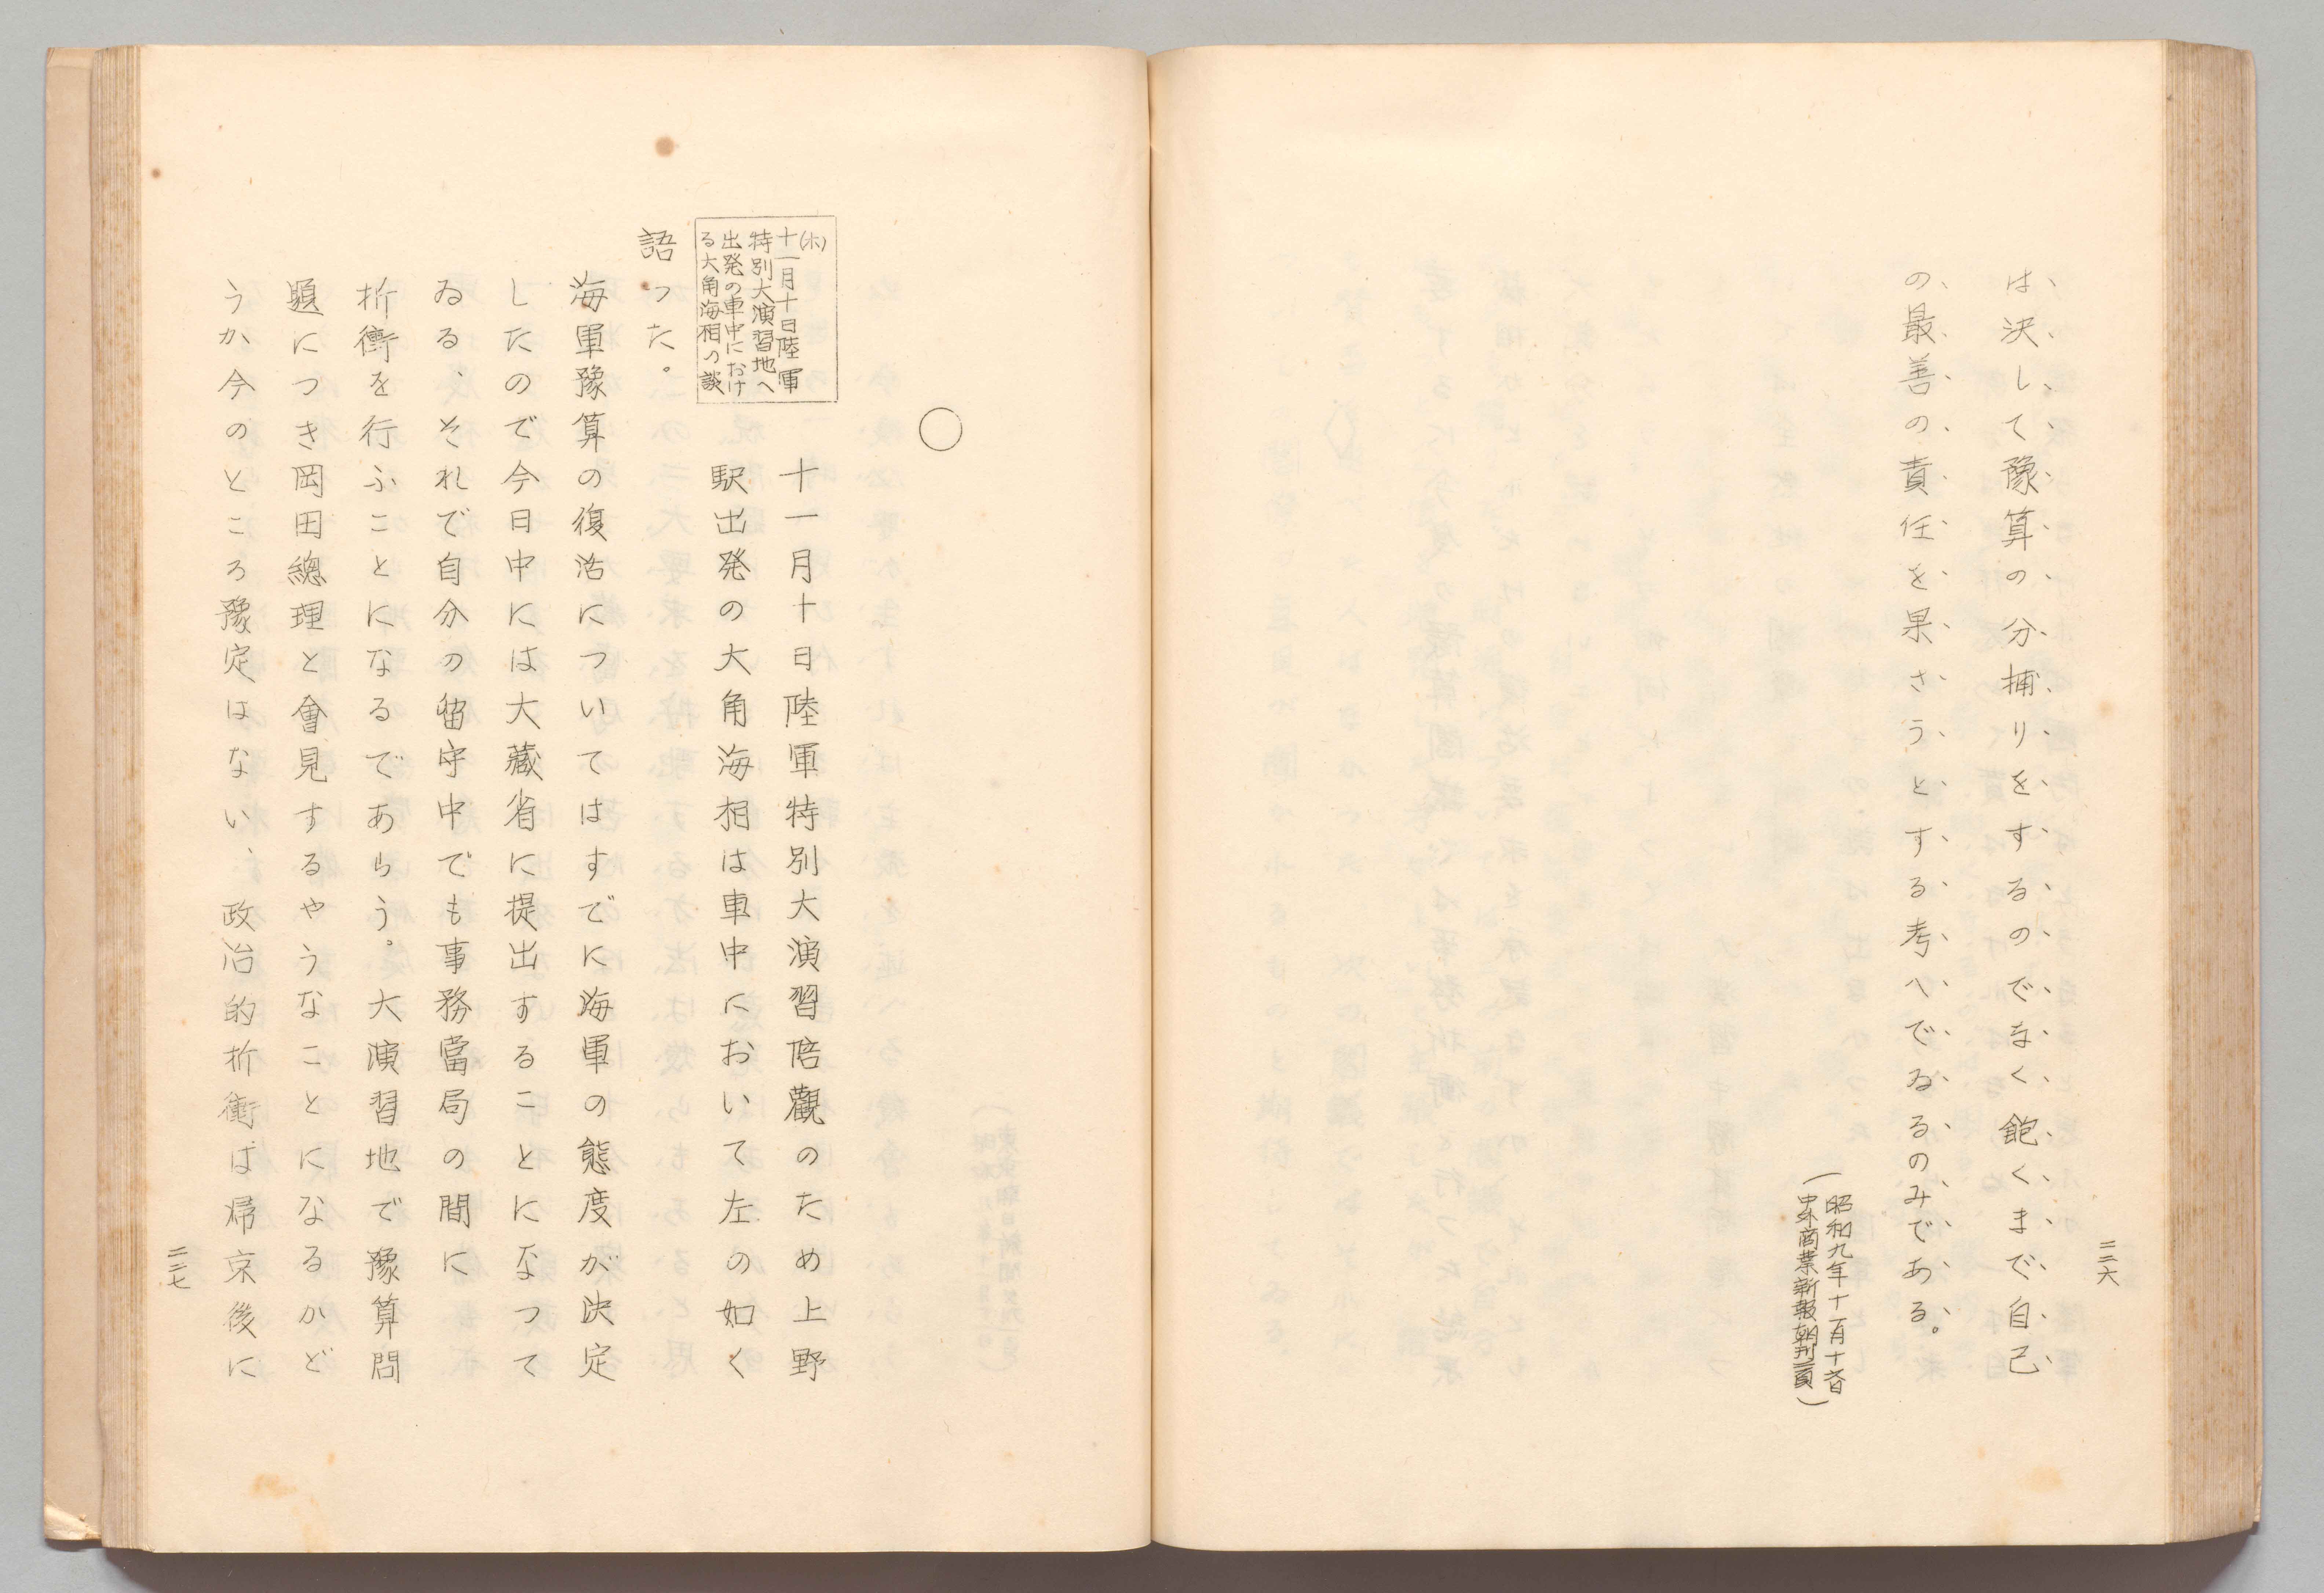 は決して豫算の分捕りをするのでなく飽くまで自己
の最善の責任を果さうとする考へでゐるのみである。
（昭和九年十一月十一日
中外商業新報朝刊二頁）
二二六
○
(ホ)
十一月十日陸軍
特別大演習地へ
出発の車中におけ
る大角海相の談
十一月十日陸軍特別大演習陪觀のため上野
駅出発の大角海相は車中において左の如く
語った。
海軍豫算の復活についてはすでに海軍の態度が決定
したので今日中には大藏省に提出することになって
ゐる、それで自分の留守中でも事務當局の間に
折衝を行ふことになるであらう。大演習地で豫算問
題につき岡田總理と會見するやうなことになるかど
うか今のところ豫定はない、政治的折衝は帰京後に
二二七